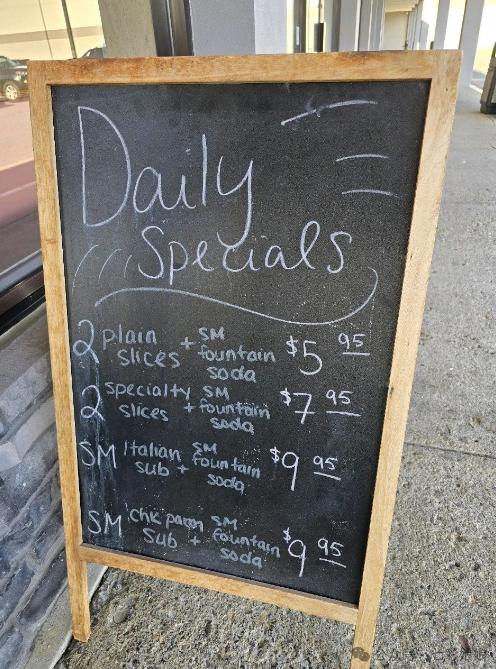 Daily
Specials
2 plain slices + SM fountain soda $5 95
2 specialty slices + SM fountain soda $7 95
SM Italian sub + SM fountain soda $9 95
SM chk parm sub + SM fountain soda $9 95